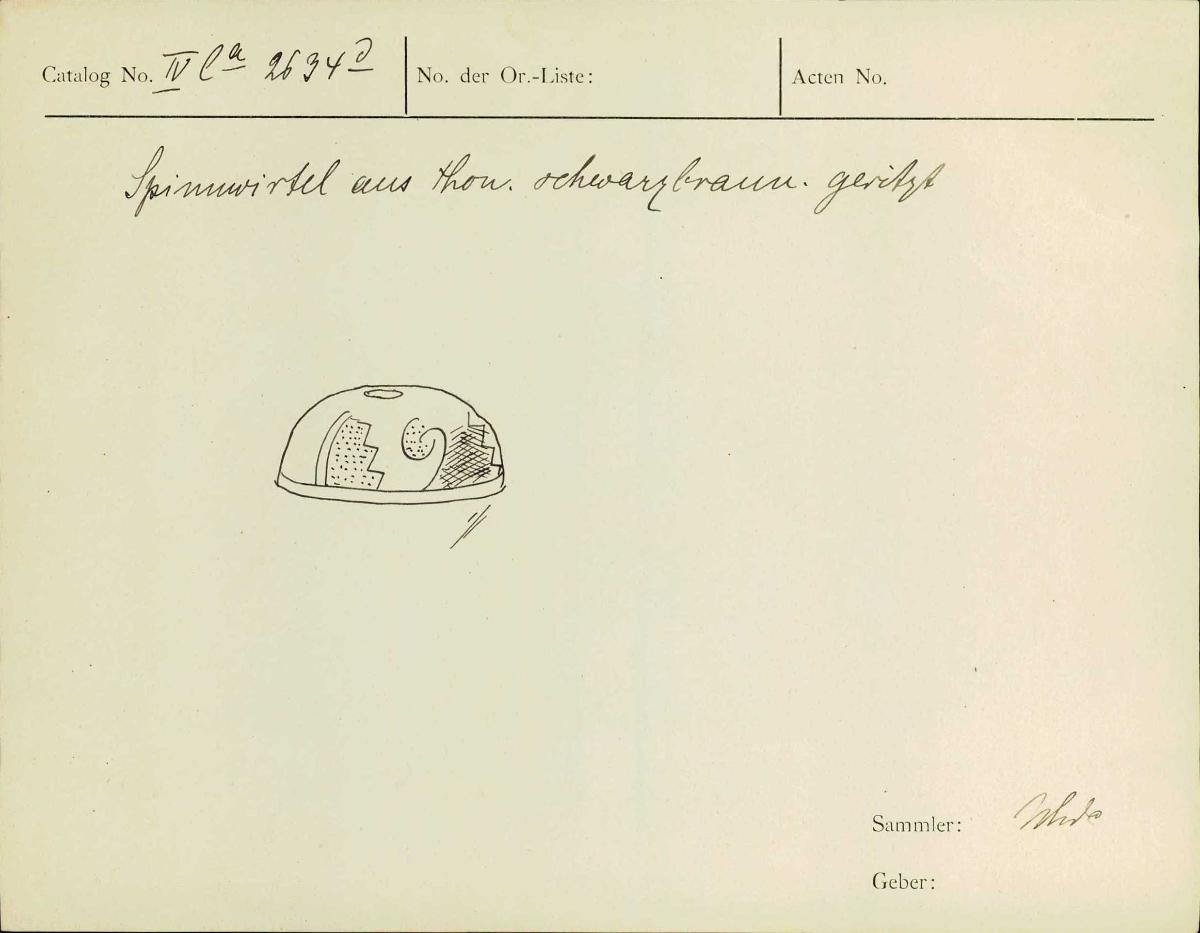 Catalog No. IV Ca 2634 d
No. der Or.-Liste:
Acten No.
Spinnwirtel aus thon. schwarzbraun. geritzt
1/1
Sammler: Uhde
Geber: